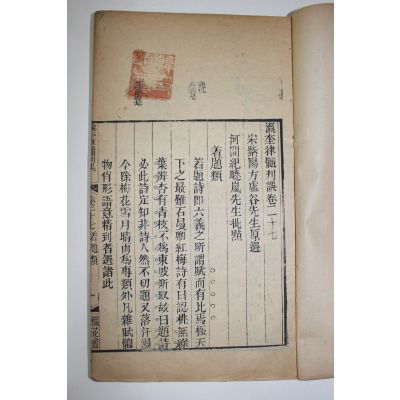 瀛奎律髓刊誤卷二十七
宋紫陽方虛谷先生原選
河間紀曉嵐先生批點
著題類
著題詩即六義之所謂賦而有比焉極天
下之最難石曼卿紅梅詩有曰認桃無綠
葉辨杏有青枝不爲東坡所取故曰題詩
必此詩定知非詩人然不切題又落汗漫
今除梅花雪月晴雨爲專類外凡雜賦體
物肖形語意精到者選諸此
卷二十七著題類
一